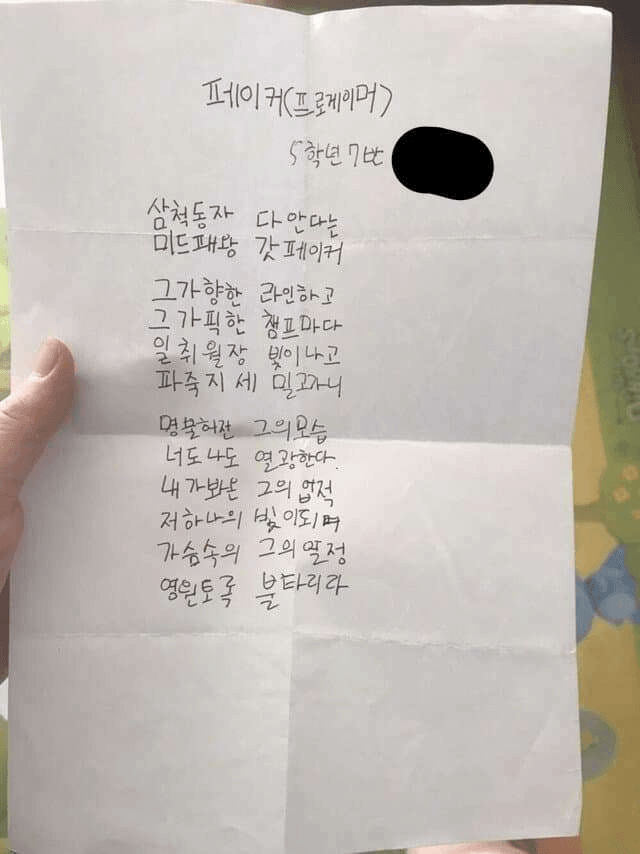 페이커(프로게이머)
5학년 7반
삼척동자 다 안다는
미드패왕 갓 페이커
그가향한 라인하고
그가픽한 챔프마다
일취월장 빛이나고
파죽지세 밀고가니
명불허전 그의모습
너도나도 열광한다.
내가봐온 그의 업적
저하나의 빛이되며
가슴속의 그의 열정
영원토록 불타리라